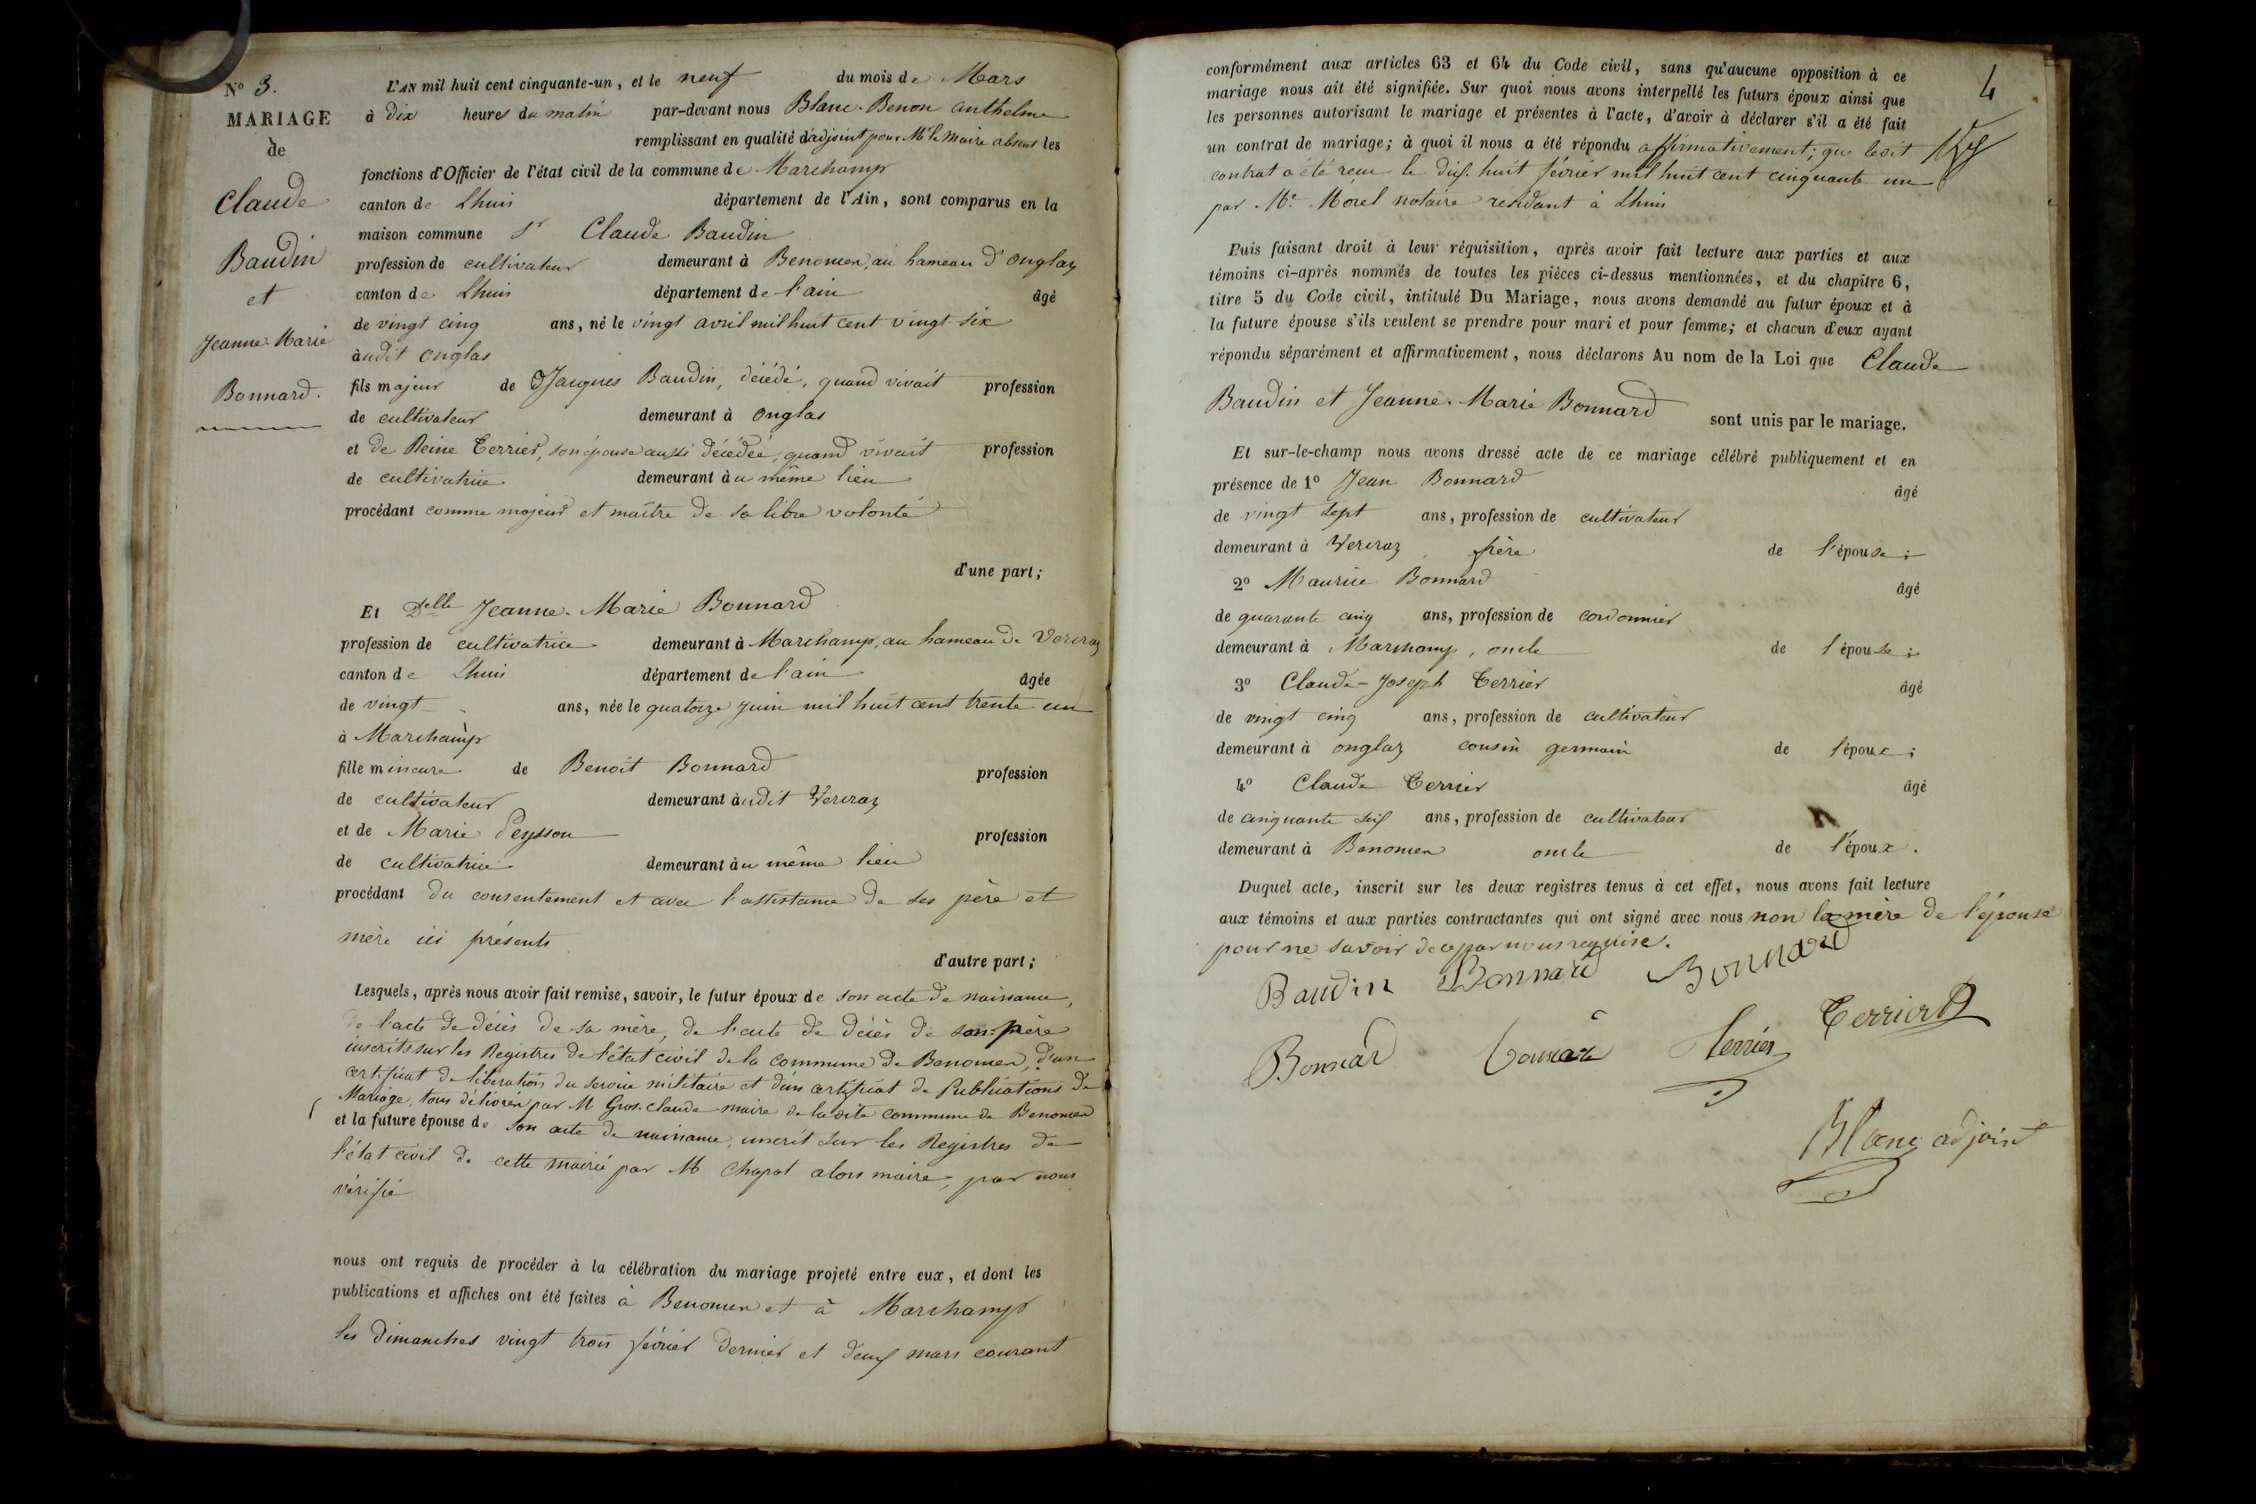 N° 3.
MARIAGE
de
Claude
Baudin
et
Jeanne-Marie
Bonnard.
L'AN mil huit cent cinquante-un, et le neuf du mois de Mars
à dix heures du matin par-devant nous Blanc-Benon anthelme
remplissant en qualité d'adjoint pour Mr le Maire absent les
fonctions d'Officier de l'état civil de la commune de Marchamp
canton de Lhuis département de l'Ain, sont comparus en la
maison commune Sr Claude Baudin
profession de cultivateur demeurant à Benonen, au hameau d'onglaz
canton de Lhuis département de l'ain âgé
de vingt cinq ans, né le vingt avril mil huit cent vingt-six
audit onglas
fils majeur de Jacques Baudin, décédé, quand vivait profession
de cultivateur demeurant à onglas
et de Reine Terrier, son épouse aussi décédée, quand vivait profession
de cultivatrice demeurant au même lieu
procédant comme majeur et maître de sa libre volonté
d'une part;
Et Delle Jeanne-Marie Bonnard
profession de cultivatrice demeurant à Marchamp, au hameau de Vercraz
canton de Lhuis département de l'ain âgée
de vingt ans, née le quatorze juin mil huit cent trente-un
à Marchamp
fille mineure de Benoît Bonnard profession
de cultivateur demeurant audit Vercraz
et de Marie Peysson profession
de cultivatrice demeurant au même lieu
procédant du consentement et avec l'assistance de ses père et
mère ici présents
d'autre part;
Lesquels, après nous avoir fait remise, savoir, le futur époux de son acte de naissance,
de l'acte de décès de sa mère, de l'acte de décès de son père
inscrits sur les Registres de l'état civil de la commune de Benonen, d'un
certificat de libération du service militaire et d'un certificat de Publications de
Mariage, tous délivrés par M Gros-claude maire de ladite commune de Benonen
et la future épouse de son acte de naissance, inscrit sur les Registres de
l'état civil de cette mairie par M Chapot alors maire, par nous
vérifié
nous ont requis de procéder à la célébration du mariage projeté entre eux, et dont les
publications et affiches ont été faites à Benonen et à Marchamp
les dimanches vingt trois février dernier et deux mars courant
4
conformément aux articles 63 et 64 du Code civil, sans qu'aucune opposition à ce
mariage nous ait été signifiée. Sur quoi nous avons interpellé les futurs époux ainsi que
les personnes autorisant le mariage et présentes à l'acte, d'avoir à déclarer s'il a été fait
un contrat de mariage; à quoi il nous a été répondu affirmativement; que ledit
contrat a été reçu le dix-huit février mil huit cent cinquante un
par Me Morel notaire résidant à Lhuis
Puis faisant droit à leur réquisition, après avoir fait lecture aux parties et aux
témoins ci-après nommés de toutes les pièces ci-dessus mentionnées, et du chapitre 6,
titre 5 du Code civil, intitulé Du Mariage, nous avons demandé au futur époux et à
la future épouse s'ils veulent se prendre pour mari et pour femme; et chacun d'eux ayant
répondu séparément et affirmativement, nous déclarons Au nom de la Loi que Claude
Baudin et Jeanne-Marie Bonnard sont unis par le mariage.
Et sur-le-champ nous avons dressé acte de ce mariage célébré publiquement et en
présence de 1° Jean Bonnard âgé
de vingt sept ans, profession de cultivateur
demeurant à Vercraz frère de l'épouse;
2° Maurice Bonnard âgé
de quarante cinq ans, profession de cordonnier
demeurant à Marchamp, oncle de l'épouse;
3° Claude-Joseph Terrier âgé
de vingt cinq ans, profession de cultivateur
demeurant à onglaz cousin germain de l'époux;
4° Claude Terrier âgé
de cinquante six ans, profession de cultivateur
demeurant à Benonen oncle de l'époux.
Duquel acte, inscrit sur les deux registres tenus à cet effet, nous avons fait lecture
aux témoins et aux parties contractantes qui ont signé avec nous non la mère de l'épouse
pour ne savoir de ce par nous requise.
Baudin Bonnard Bonnard
Bonnard Terrier Terrier
Blanc adjoint